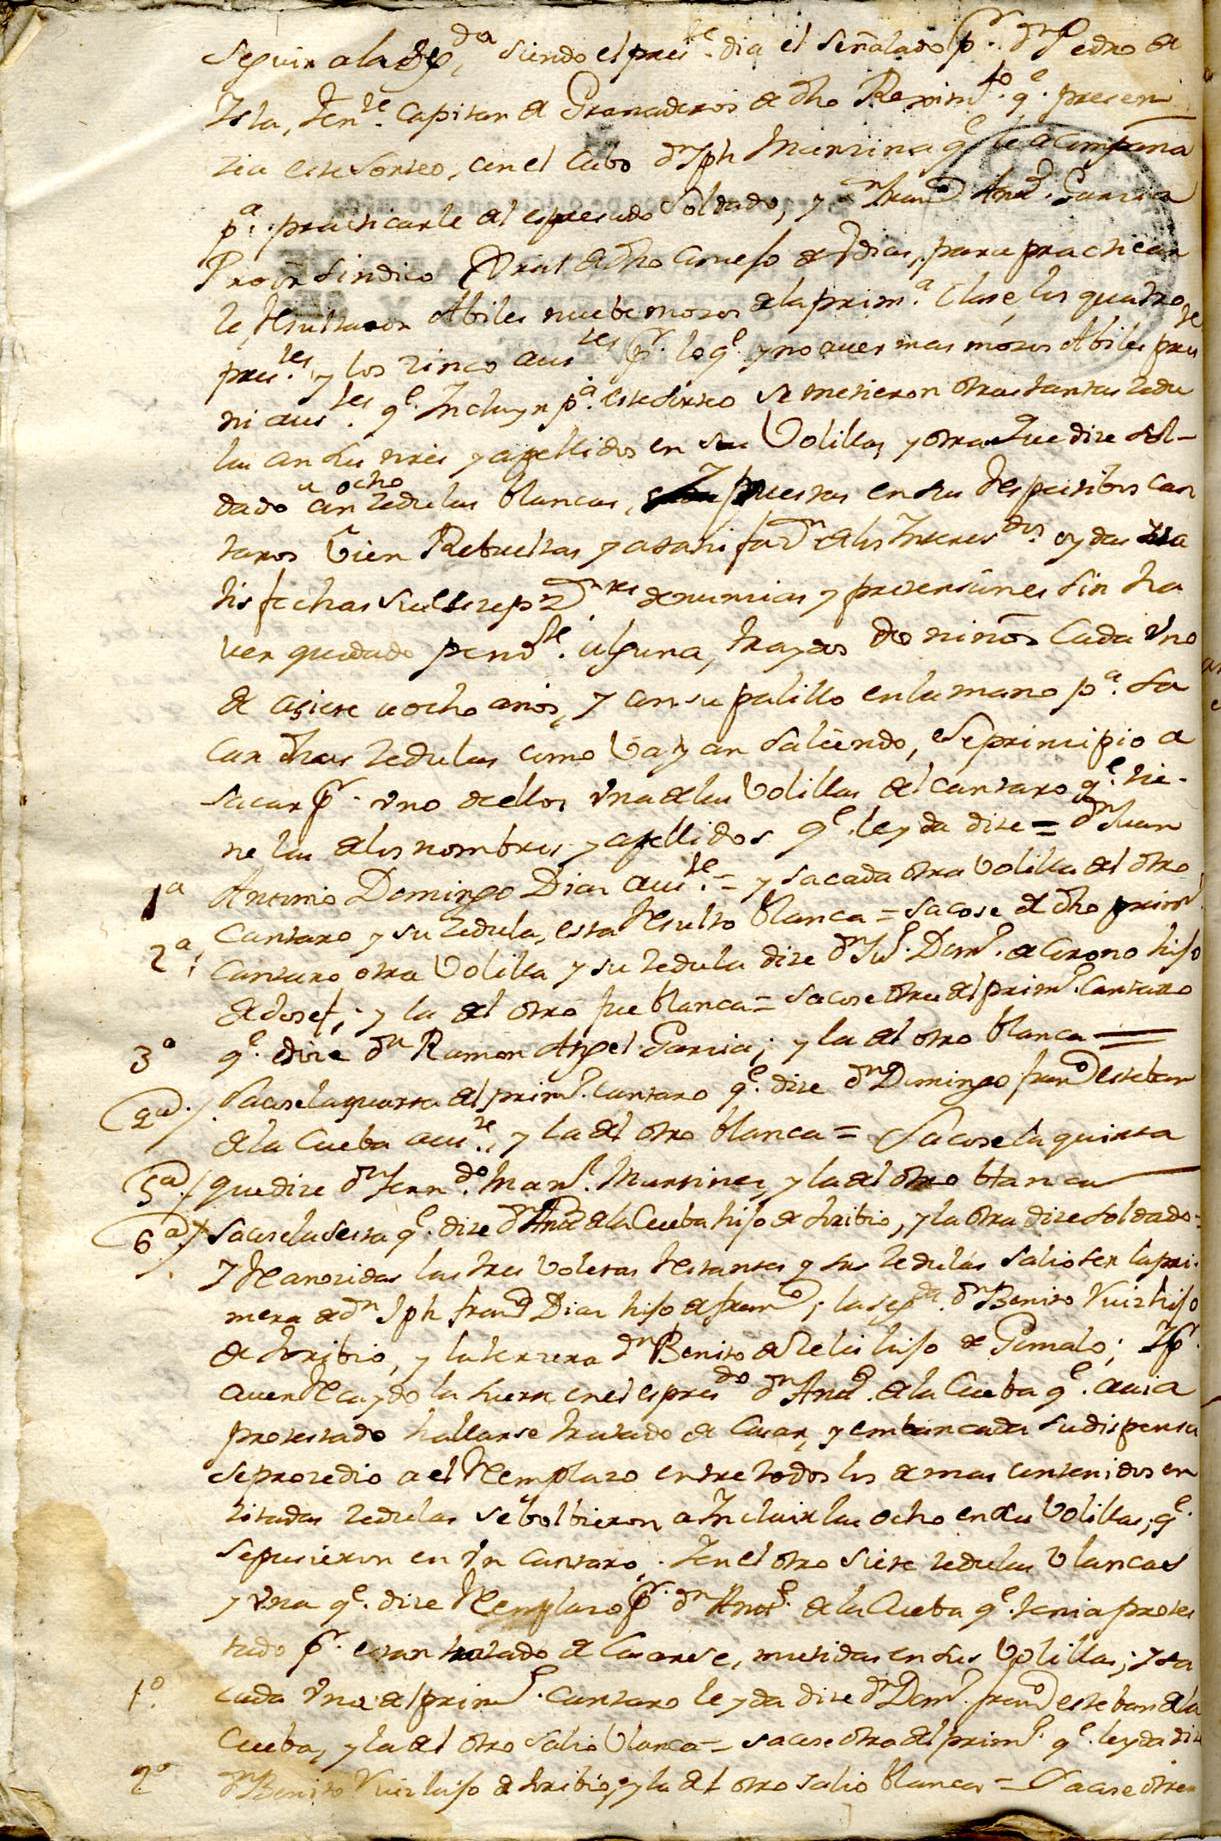 seguir a la siendo el pres.te dia el señalado p.r Dn Pedro de
Isla, Ten.te Capitan de Granaderos de dho Regim.to q.e presen
zia este Sorteo, con el Cabo Dn Jph q.e le acompaña
p.a practicarle del espresado Soldado, y Dn Fran.co And.s Garzia
Pro.or Sindico Gral de dho Conzejo de para practicar
le, resultaron Abiles nuebe mozos de la prim.a Clase, los quatro
pres.tes y los zinco aus.tes p.r lo q.e y no aver mas mozos Abiles pres.te
ni aus.tes q.e Incluyr p.a este Sorteo se metieron otras tantas zedu
las con sus nres y apellidos en sus Volillas, y otra que dize Sol-
dado con ocho zedulas blancas, puestas en sus respectibos can
taros vien Rebueltas y a satisfaz.on de los Interes.dos oydas sa
tisfechas sus denunzias y pretensiones sin ha
ver quedado pend.te alguna, traydos dos niños Cada vno
de a siete a ocho años, y con su palillo en la mano p.a sa
car dhas zedulas como vayan saliendo, se prinzipio a
sacar p.r vno de ellos vna de las Volillas del cantaro q.e tie-
ne las de los nombres y apellidos q.e leyda dize = Dn Juan
1.a Antonio Domingo Diaz aus.te = y sacada otra Volilla del otro
Cantaro y su zedula, esta resulto blanca = Sacose de dho prim.r
2.a Cantaro otra Volilla y su zedula dize Dn Dom.o de Corono hijo
de Josef; y la del otro fue blanca = Sacose otra del prim.r Cantaro
3.a q.e dize Dn Ramon Angel Garzia; y la del otro blanca =
4.a Sacose la quarta del prim.r cantaro q.e dize Dn Domingo Fran.co Esteban
de la Cueba aus.te, y la del otro blanca = Sacose la quinta
5.a que dize Dn Fern.do Man.l Martinez, y la del otro blanca
6.a Sacose la sesta q.e dize Dn And.s de la Cueba hijo de Toribio, y la otra dize Soldado =
Y reconozidas las tres voletas restantes y sus zedulas salio ser la pri-
mera de Dn Jph Fran.co Diaz hijo de Fran.co; la seg.da Dn Benito Ruiz hijo
de Toribio, y la terzera Dn Benito de hijo de Gonzalo; Y p.r
aver recaydo la suerte en el espres.do Dn And.s de la Cueba q.e avia
protestado hallarse tratado de Casar, y embancada su dispensa
se prozedio a el Remplazo entre todos los demas contenidos en
zitadas zedulas se bolbieron a Incluir las ocho en sus Volillas, q.e
se pusieron en vn Cantaro, Y en el otro siete zedulas blancas
y vna q.e dize Remplazo p.r Dn And.s de la Cueba q.e tenia protes
tado p.r estar tratado de Casarse, metidas en sus Volillas; y sa
1.o cada vna del prim.r cantaro leyda dize Dn Dom.o Fran.co Esteban de la
Cueba, y la del otro salio blanca = sacose otra del prim.r q.e leyda dize
2.o Dn Benito Ruiz hijo de Toribio, y la del otro salio blanca = Sacose otra